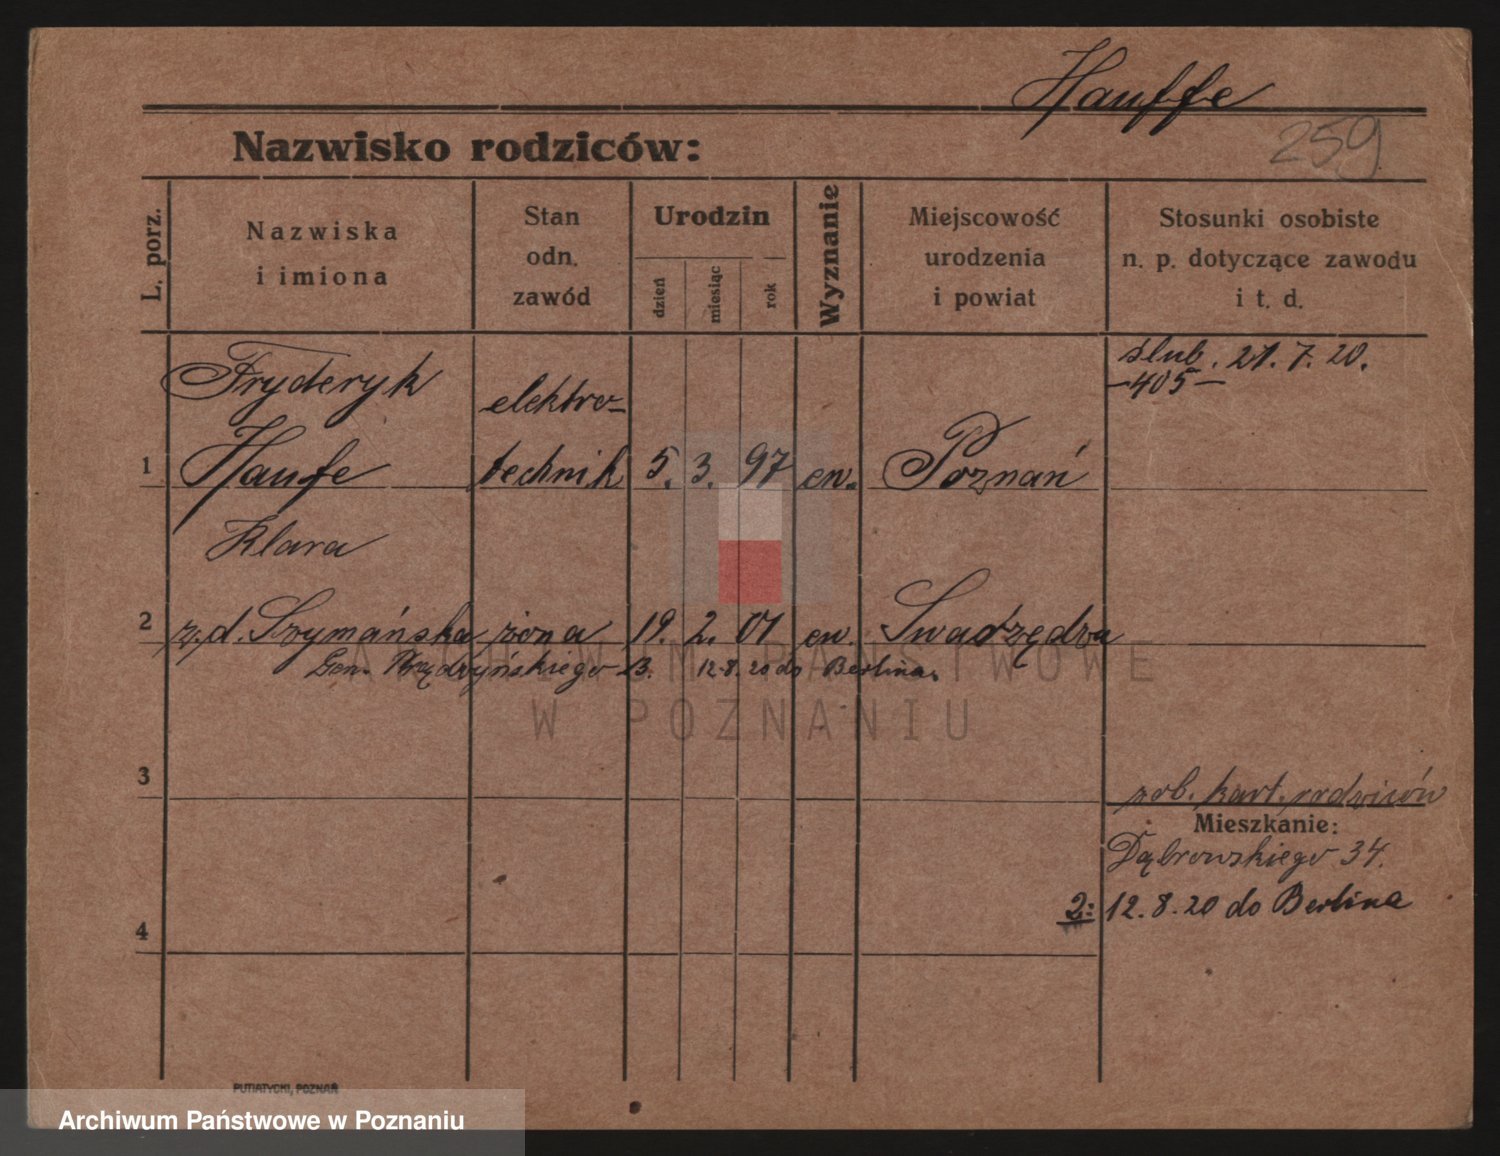 Hauffe
259
Nazwisko rodziców:
L. porz.
Nazwiska
i imiona
Stan
odn.
zawód
Urodzin
dzień
miesiąc
rok
Wyznanie
Miejscowość
urodzenia
i powiat
Stosunki osobiste
n. p. dotyczące zawodu
i t. d.
ślub. 21. 7. 20.
—405—
Fryderyk elektro-
1 Haufe technik 5. 3. 97 ew. Poznań
Klara
2 z. d. Szymańska żona 19. 2. 01 ew. Swadzędza
Gen. Prądzyńskiego 13. 12.8.20 do Berlina.
ARCHIWUM PAŃSTWOWE
W POZNANIU
3
zob. kart. rodziców
Mieszkanie:
Dąbrowskiego 34.
2: 12.8.20 do Berlina
4
PUTIATYCKI, POZNAŃ
Archiwum Państwowe w Poznaniu